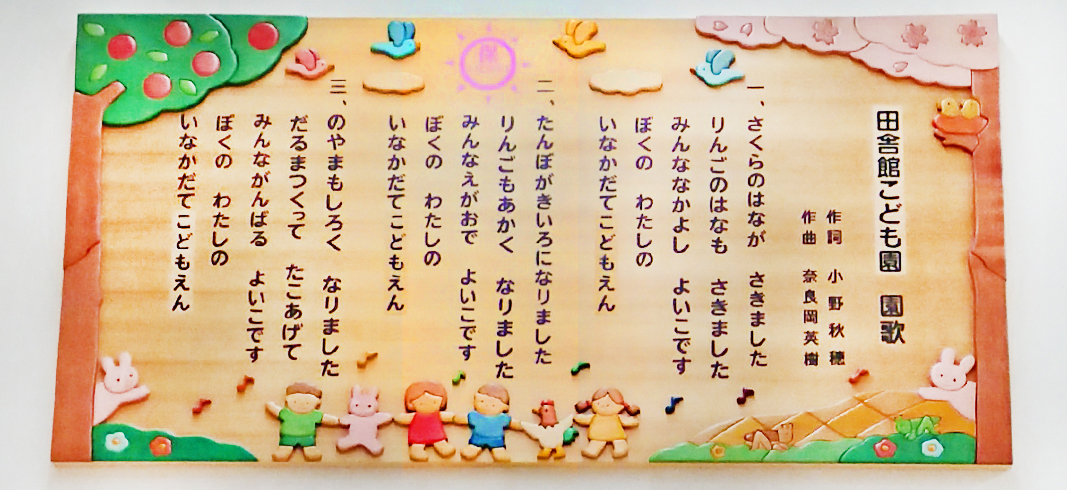 田舎館こども園　園歌
作詞　小野秋穂
作曲　奈良岡英樹
一、さくらのはなが　さきました
りんごのはなも　さきました
みんななかよし　よいこです
ぼくの　わたしの
いなかだてこどもえん
二、たんぼがきいろになりました
りんごもあかく　なりました
みんなえがおで　よいこです
ぼくの　わたしの
いなかだてこどもえん
三、のやまもしろく　なりました
だるまつくって　たこあげて
みんながんばる　よいこです
ぼくの　わたしの
いなかだてこどもえん
保